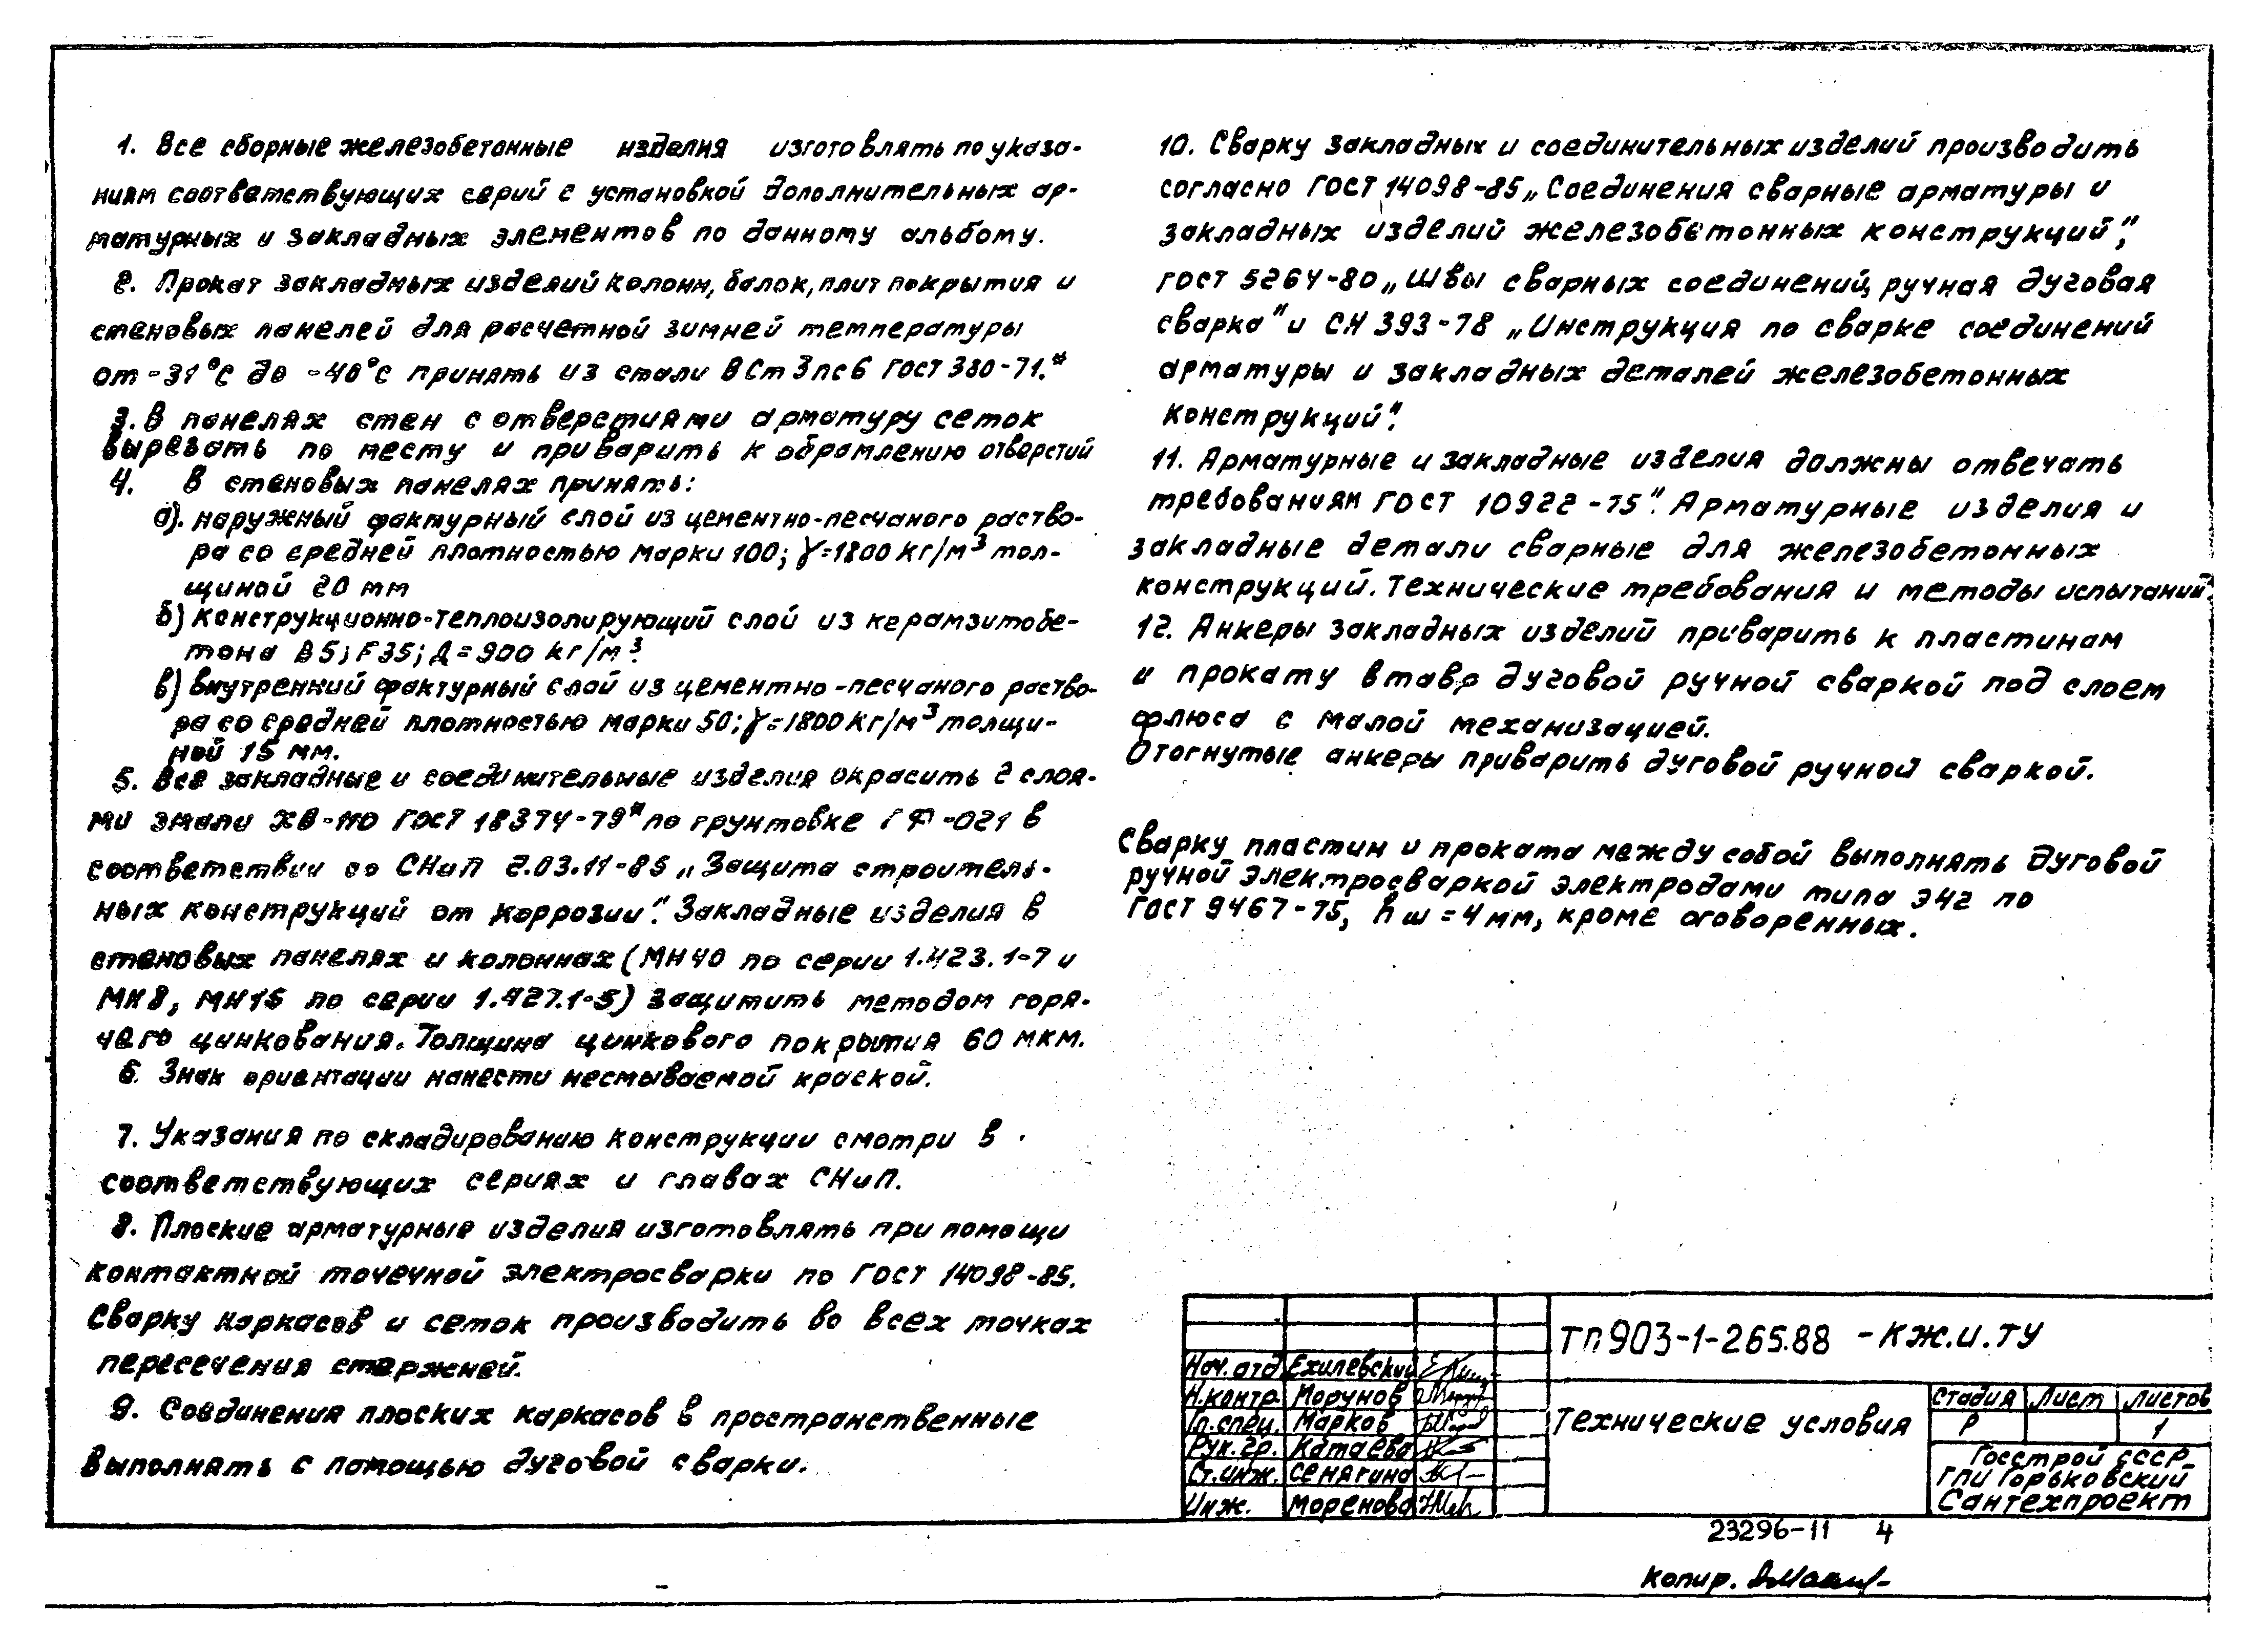 1. Все сборные железобетонные изделия изготовлять по указа-
ниям соответствующих серий с установкой дополнительных ар-
матурных и закладных элементов по данному альбому.
2. Прокат закладных изделий колонн, балок, плит покрытия и
стеновых панелей для расчетной зимней температуры
от -31°С до -40°С принять из стали ВСт3пс6 ГОСТ 380-71.*
3. В панелях стен с отверстиями арматуру сеток
вырезать по месту и приварить к обрамлению отверстий
4. В стеновых панелях принять:
а). наружный фактурный слой из цементно-песчаного раство-
ра со средней плотностью марки 100; γ=1800 кг/м³ тол-
щиной 20 мм
б) конструкционно-теплоизолирующий слой из керамзитобе-
тона В5; F35; Д=900 кг/м³.
в) внутренний фактурный слой из цементно-песчаного раство-
ра со средней плотностью марки 50; γ=1800 кг/м³ толщи-
ной 15 мм.
5. Все закладные и соединительные изделия окрасить 2 слоя-
ми эмали ХВ-110 ГОСТ 18374-79* по грунтовке ГФ-021 в
соответствии со СНиП 2.03.11-85 „Защита строитель-
ных конструкций от коррозии". Закладные изделия в
стеновых панелях и колоннах (МН40 по серии 1.423.1-7 и
МН8, МН15 по серии 1.427.1-5) защитить методом горя-
чего цинкования. Толщина цинкового покрытия 60 мкм.
6. Знак ориентации нанести несмываемой краской.
7. Указания по складированию конструкции смотри в
соответствующих сериях и главах СНиП.
8. Плоские арматурные изделия изготовлять при помощи
контактной точечной электросварки по ГОСТ 14098-85.
Сварку каркасов и сеток производить во всех точках
пересечения стержней.
9. Соединения плоских каркасов в пространственные
выполнять с помощью дуговой сварки.
10. Сварку закладных и соединительных изделий производить
согласно ГОСТ 14098-85 „Соединения сварные арматуры и
закладных изделий железобетонных конструкций",
ГОСТ 5264-80 „Швы сварных соединений, ручная дуговая
сварка" и СН 393-78 „Инструкция по сварке соединений
арматуры и закладных деталей железобетонных
конструкций".
11. Арматурные и закладные изделия должны отвечать
требованиям ГОСТ 10922-75". Арматурные изделия и
закладные детали сварные для железобетонных
конструкций. Технические требования и методы испытаний".
12. Анкеры закладных изделий приварить к пластинам
и прокату втавр дуговой ручной сваркой под слоем
флюса с малой механизацией.
Отогнутые анкеры приварить дуговой ручной сваркой.
Сварку пластин и проката между собой выполнять дуговой
ручной электросваркой электродами типа Э42 по
ГОСТ 9467-75, hш=4мм, кроме оговоренных.
ТП 903-1-265.88 -КЖ.И.ТУ
Нач. отд Ехилевский
Н.контр. Морунов
Гл.спец. Марков
Рук. гр. Катаева
Ст.инж. Сенягина
Инж. Моренова
Технические условия
Стадия Лист Листов
Р 1
Госстрой СССР
ГПИ Горьковский
Сантехпроект
23296-11 4
Копир.